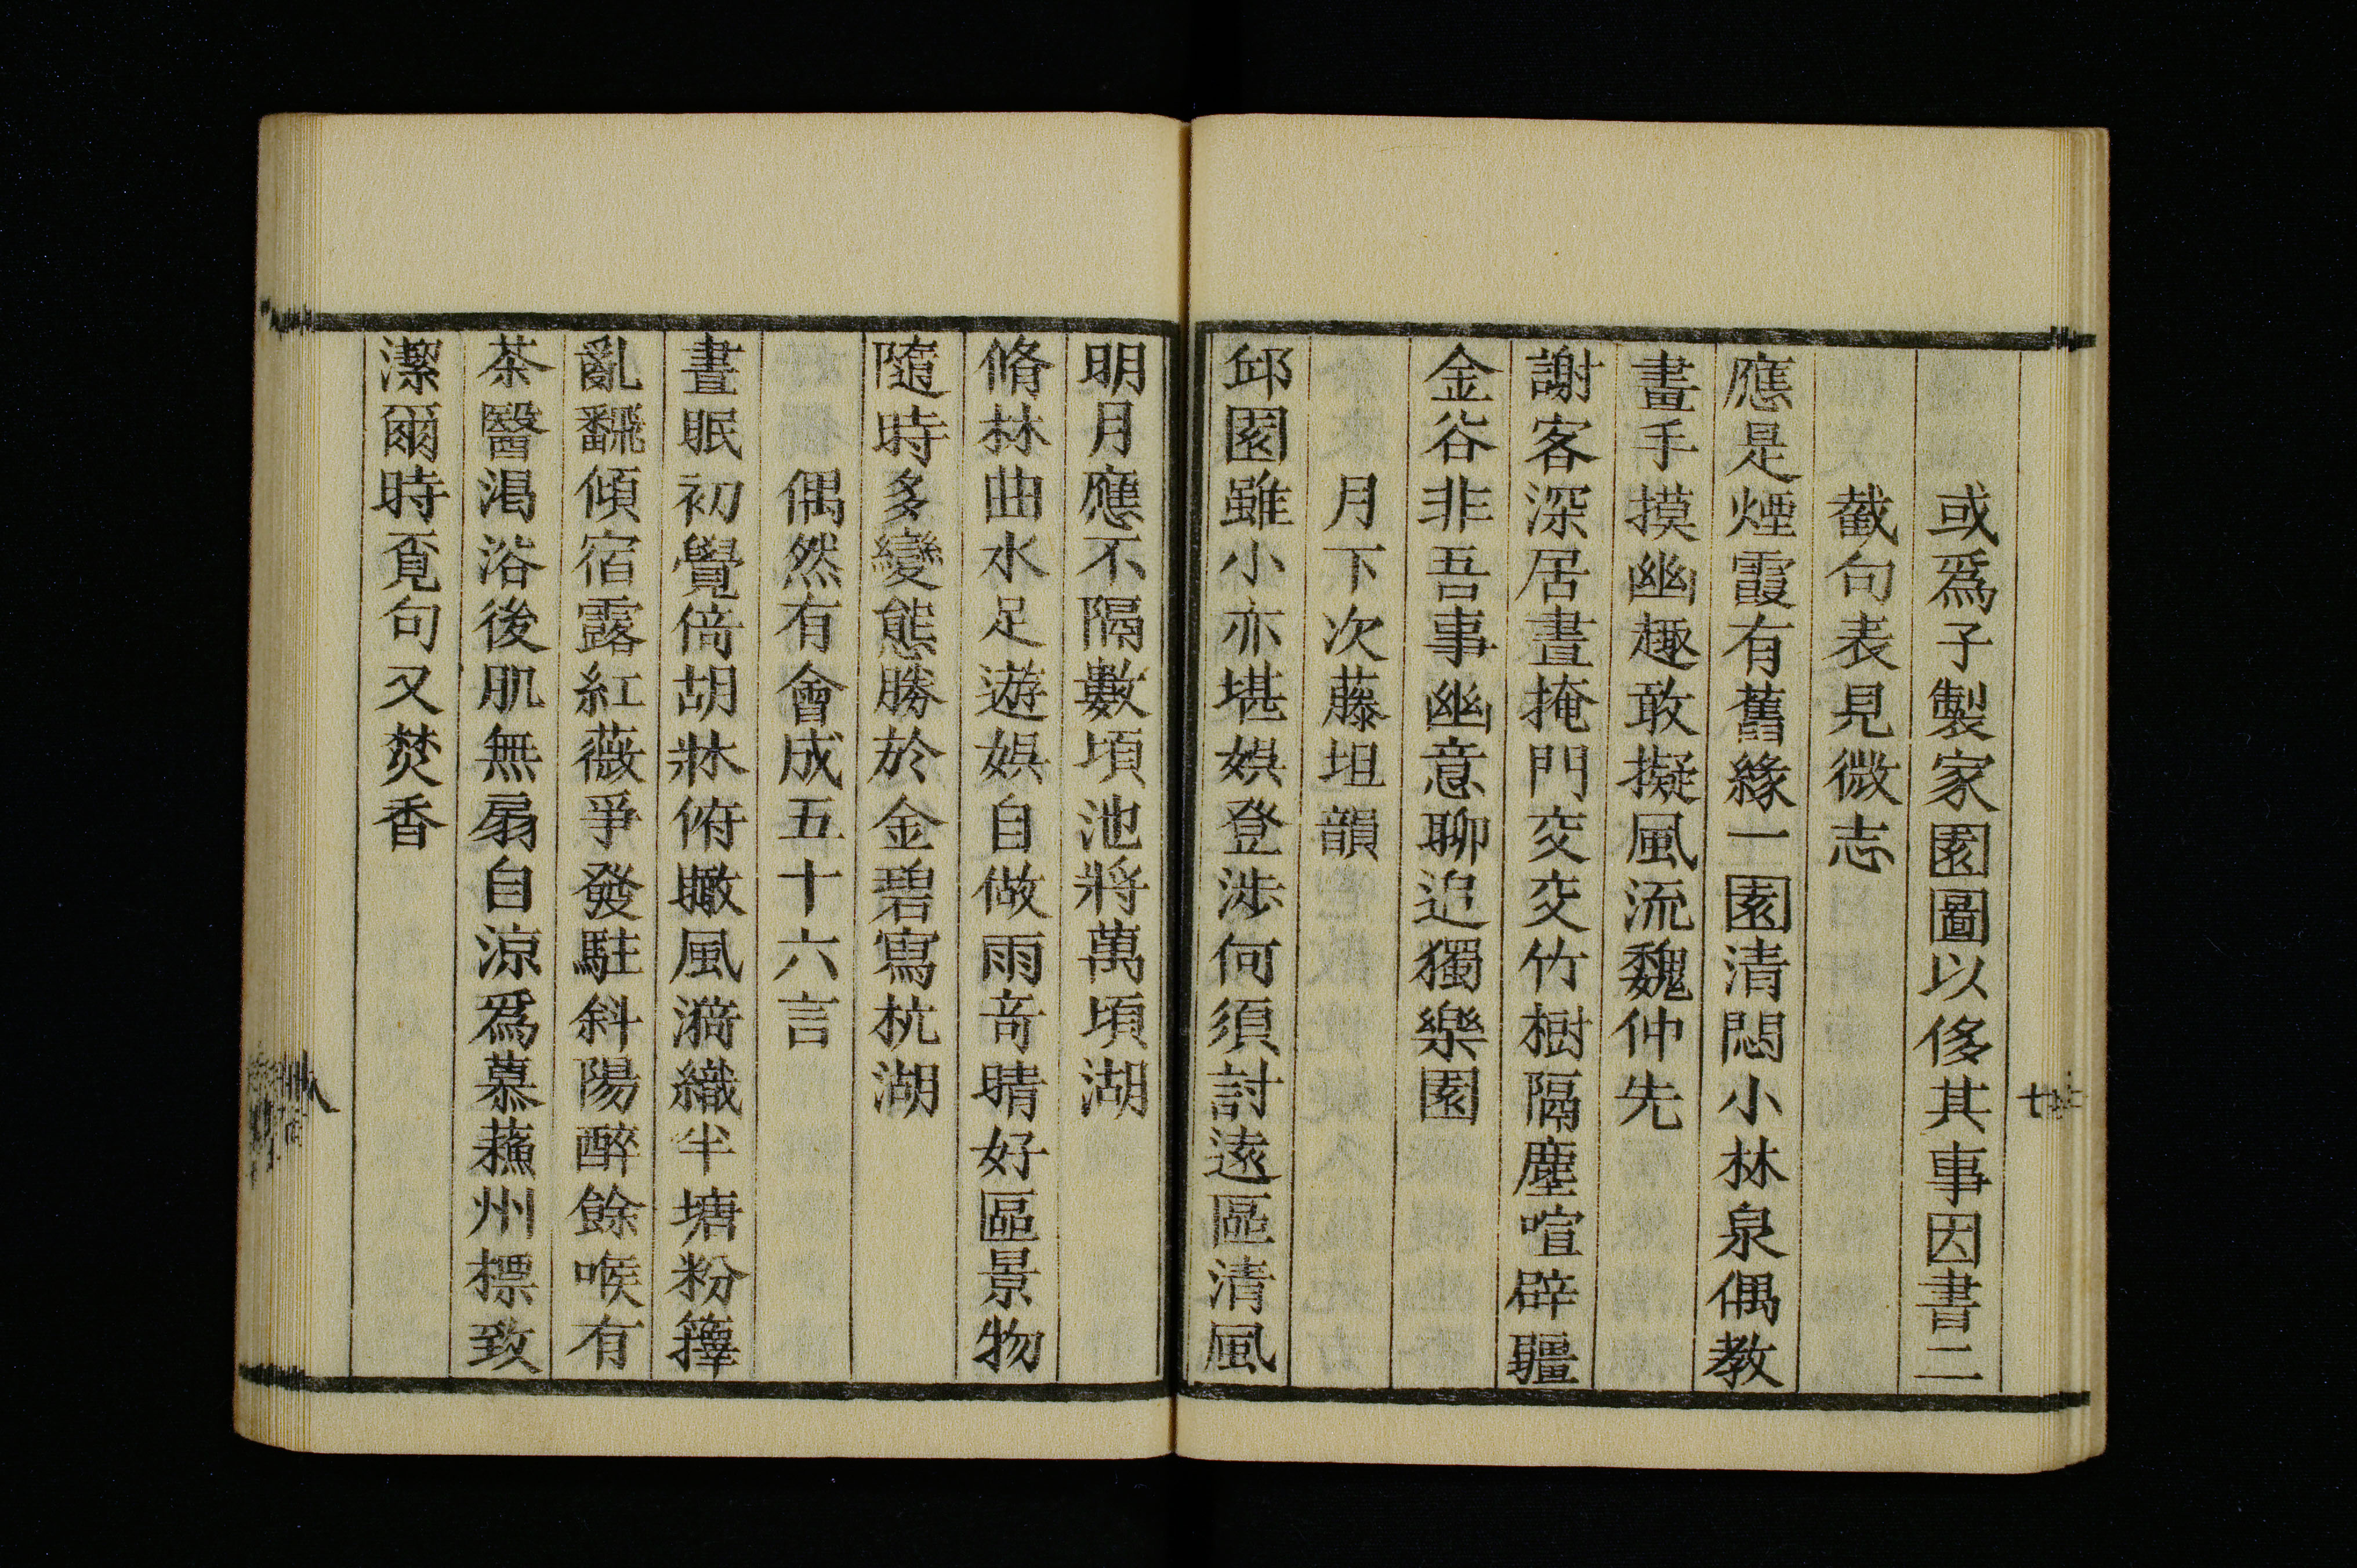 或爲子製家園圖以侈其事因書二
截句表見微志
應是煙霞有舊緣一園清悶小林泉偶教
畫手摸幽趣敢擬風流魏仲先
謝客深居晝掩門交交竹樹隔塵喧辟疆
金谷非吾事幽意聊追獨樂園
月下次藤坦韻
邱園雖小亦堪娯登涉何須討遠區清風
明月應不隔數頃池將萬頃湖
脩林曲水足遊娯自做雨奇晴好區景物
隨時多變態勝於金碧寫杭湖
偶然有會成五十六言
晝眠初覺倚胡牀俯瞰風漪織半塘粉籜
亂翻傾宿露紅薇爭發駐斜陽醉餘喉有
茶醫渴浴後肌無扇自涼爲慕蘓州標致
潔爾時覔句又焚香